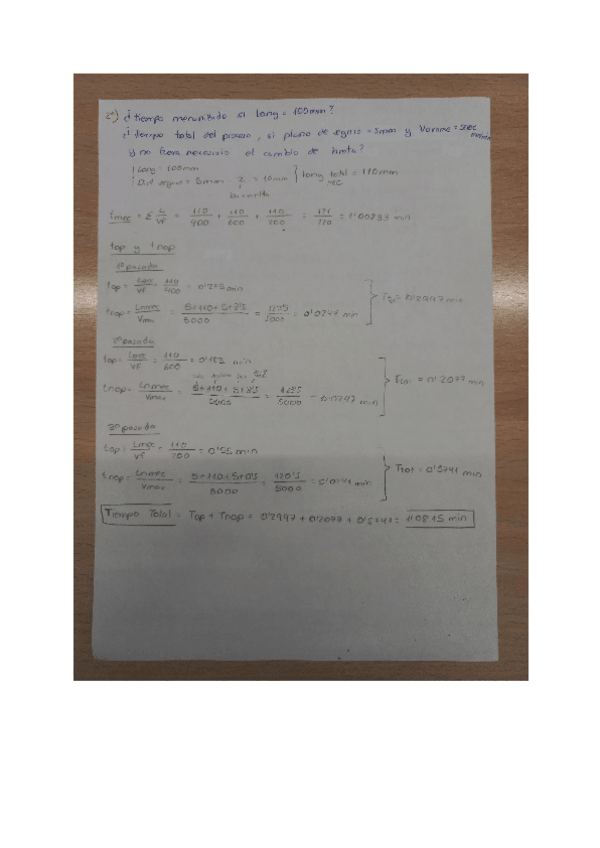 2º) ¿tiempo mecanizado si long = 100mm?
¿Tiempo total del proceso, si plano de seguro = 5mm y Vavance = 5000
y no fuera necesario el cambio de hrmta?
Long = 100mm
Dist seguro = 5mm · 2 = 10mm } long total mec = 110mm
tmec = Σ L/Vf = 110/400 + 110/600 + 110/200 =
top y tnop
1ª pasada
top = Lmec/Vf = 110/400 = 0'275 min
tnop = Lnmec/Vmax = 5+110+5+3'5/5000 = /5000 = 0'0247 min
Ttot = 0'2997 min
2ª pasada
top = Lmec/Vf = 110/600 = 0'183 min
tnop = Lnmec/Vmax = 5+110+5+3'5/5000 = /5000 = 0'0247 min
Ttot = 0'2077 min
3ª pasada
top = Lmec/Vf = 110/200 = 0'55 min
tnop = Lnmec/Vmax = 5+110+5+0'5/5000 = 120'5/5000 = 0'0241 min
Ttot = 0'5741 min
Tiempo Total = Top + Tnop = 0'2997 + 0'2077 + 0'5741 = 1'0815 min